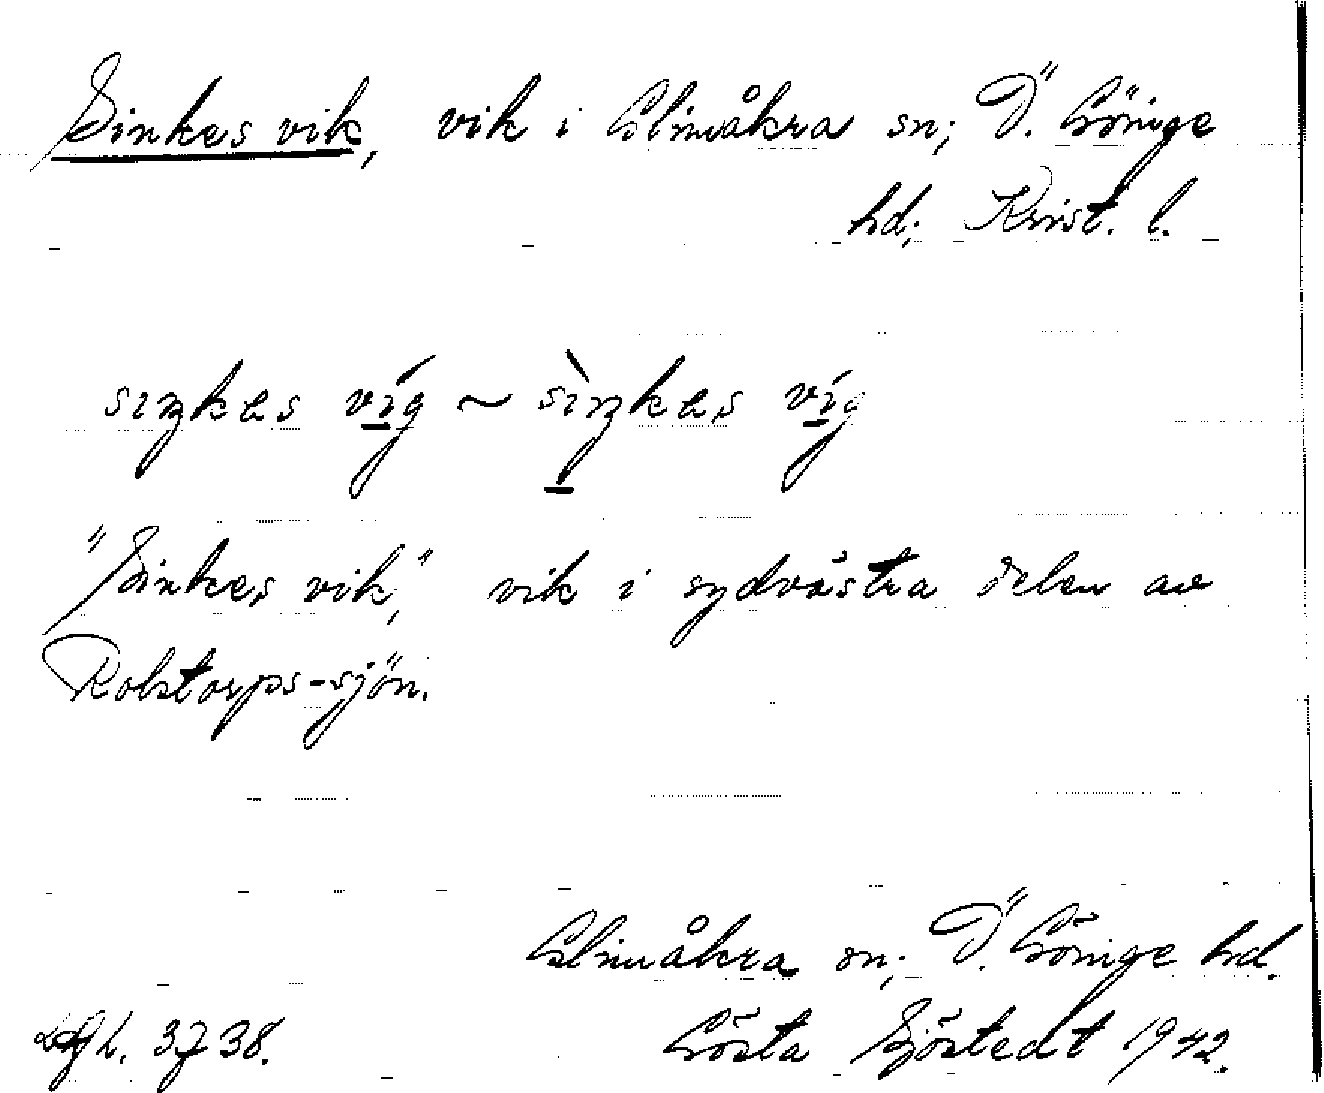 Sinkes vik, vik i Glimåkra sn; Ö. Göinge
hd; Krist. l.
siŋkəs víg ~ sìŋkəs víg
"Sinkes vik," vik i sydvästra delen av
Rolstorps-sjön.
Glimåkra sn; Ö. Göinge hd.
3738. Gösta Sjöstedt 1942.